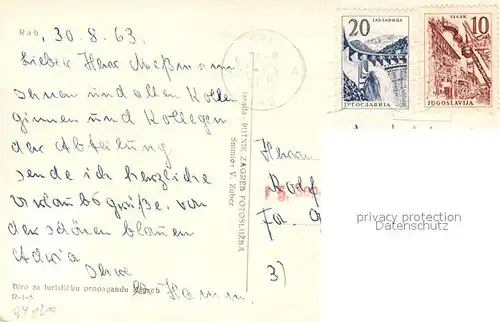 Rab, 30.8.63.
Lieber Herr Meßmann!
Ihnen und allen Kolle-
ginnen und Kollegen
der Abteilung
sende ich herzliche
Urlaubsgrüße, von
der schönen blauen
Adria
Ihre
Hamm.
Biro za turističku propagandu Zagreb
R-3-5
Izrada: PUTNIK ZAGREB FOTOSLUŽBA
Snimio: V. Zuber
JABLANICA
20
ЈУГОСЛАВИЈА
SISAK
10
JUGOSLAVIJA
Herrn
Fa.
3)
privacy protection